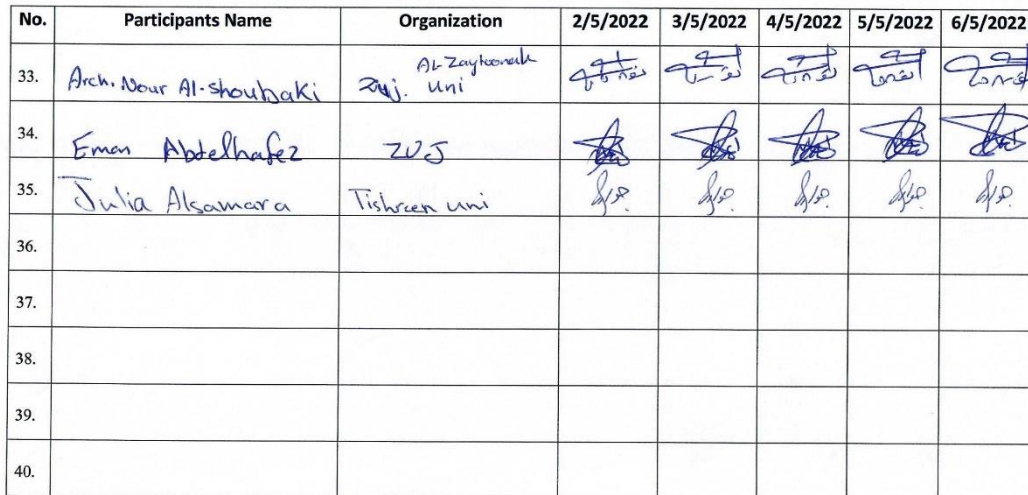 No. Participants Name Organization 2/5/2022 3/5/2022 4/5/2022 5/5/2022 6/5/2022
33. Arch. Nour Al-shoubaki Zuj. Al-Zaytoonah Uni
34. Eman Abdelhafez ZUJ
35. Julia Alsamara Tishreen uni
36.
37.
38.
39.
40.